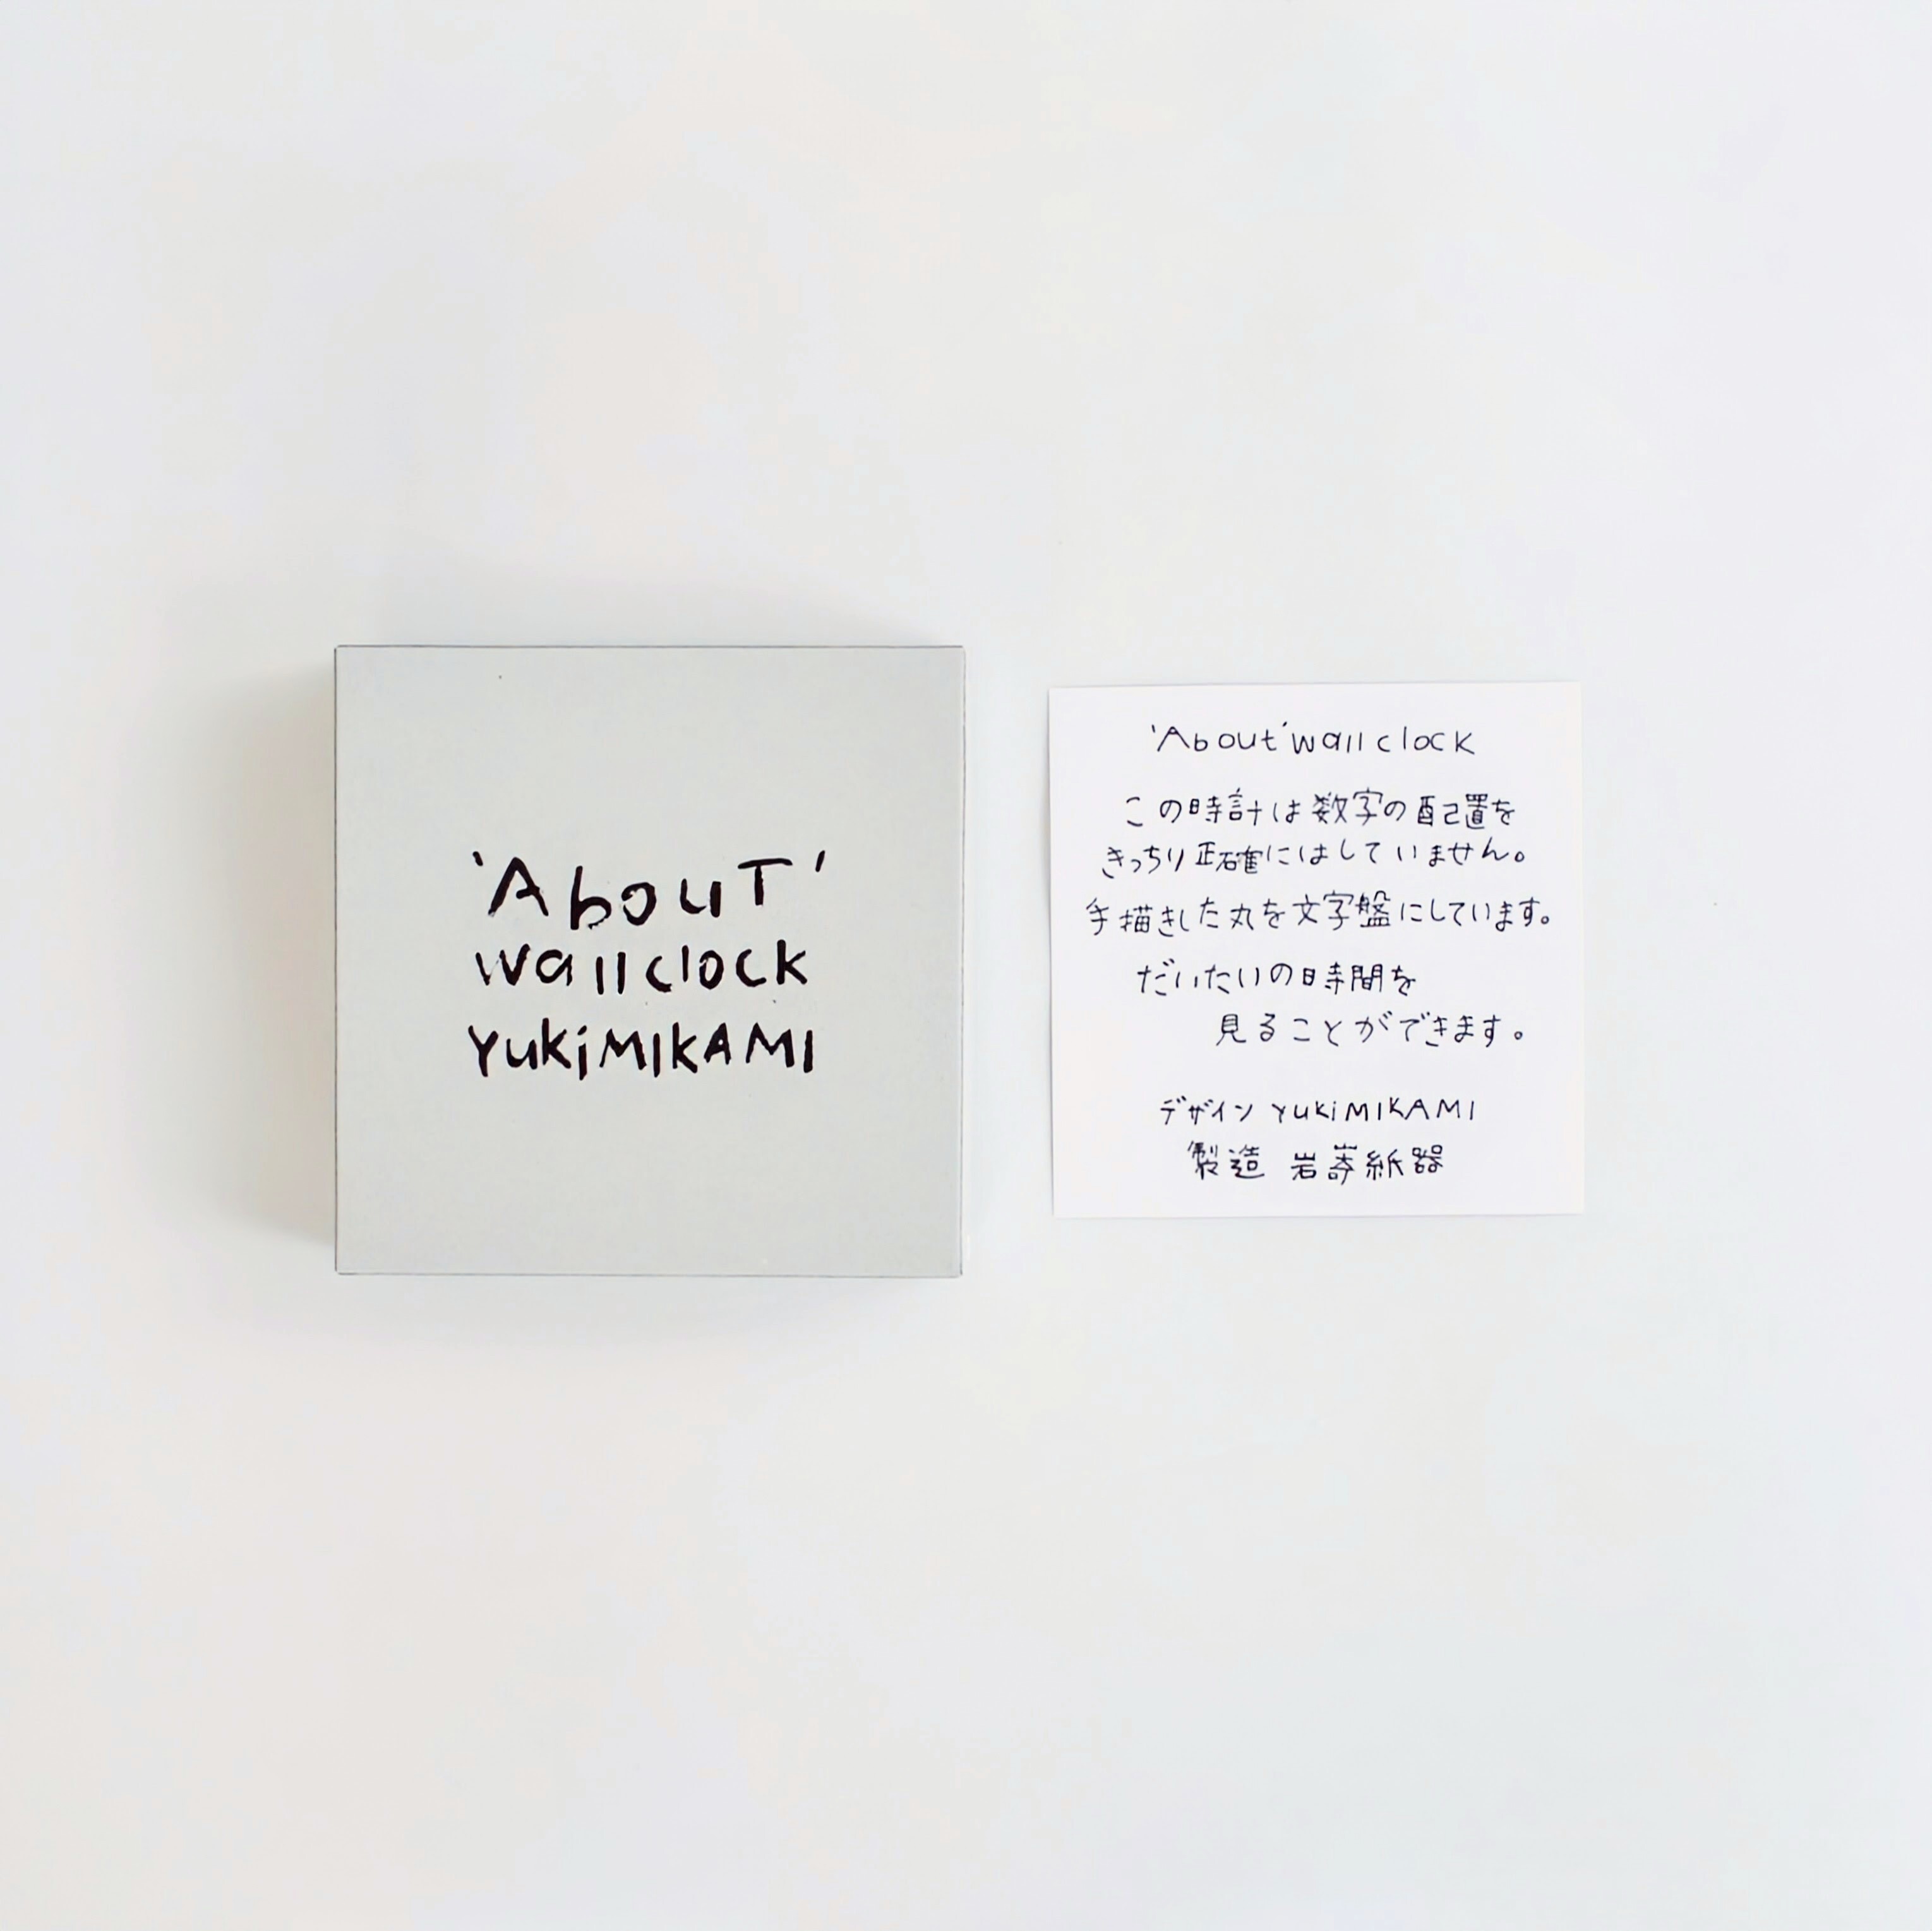 'AbouT'
wallclock
YukiMIKAMI
'About' wall clock
この時計は数字の配置を
きっちり正確にはしていません。
手描きした丸を文字盤にしています。
だいたいの時間を
見ることができます。
デザイン YUKiMIKAMI
製造 岩嵜紙器